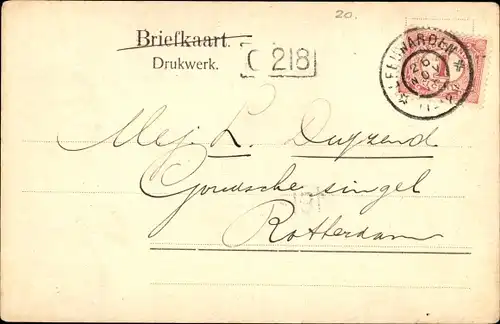 20.
Briefkaart.
Drukwerk.
C 218
LEEUWARDEN
Mej. L. Duyzend
Goudsche singel
Rotterdam